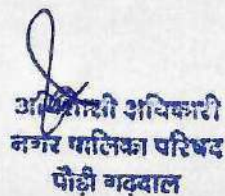 अधिशासी अधिकारी
नगर पालिका परिषद
पौड़ी गढ़वाल